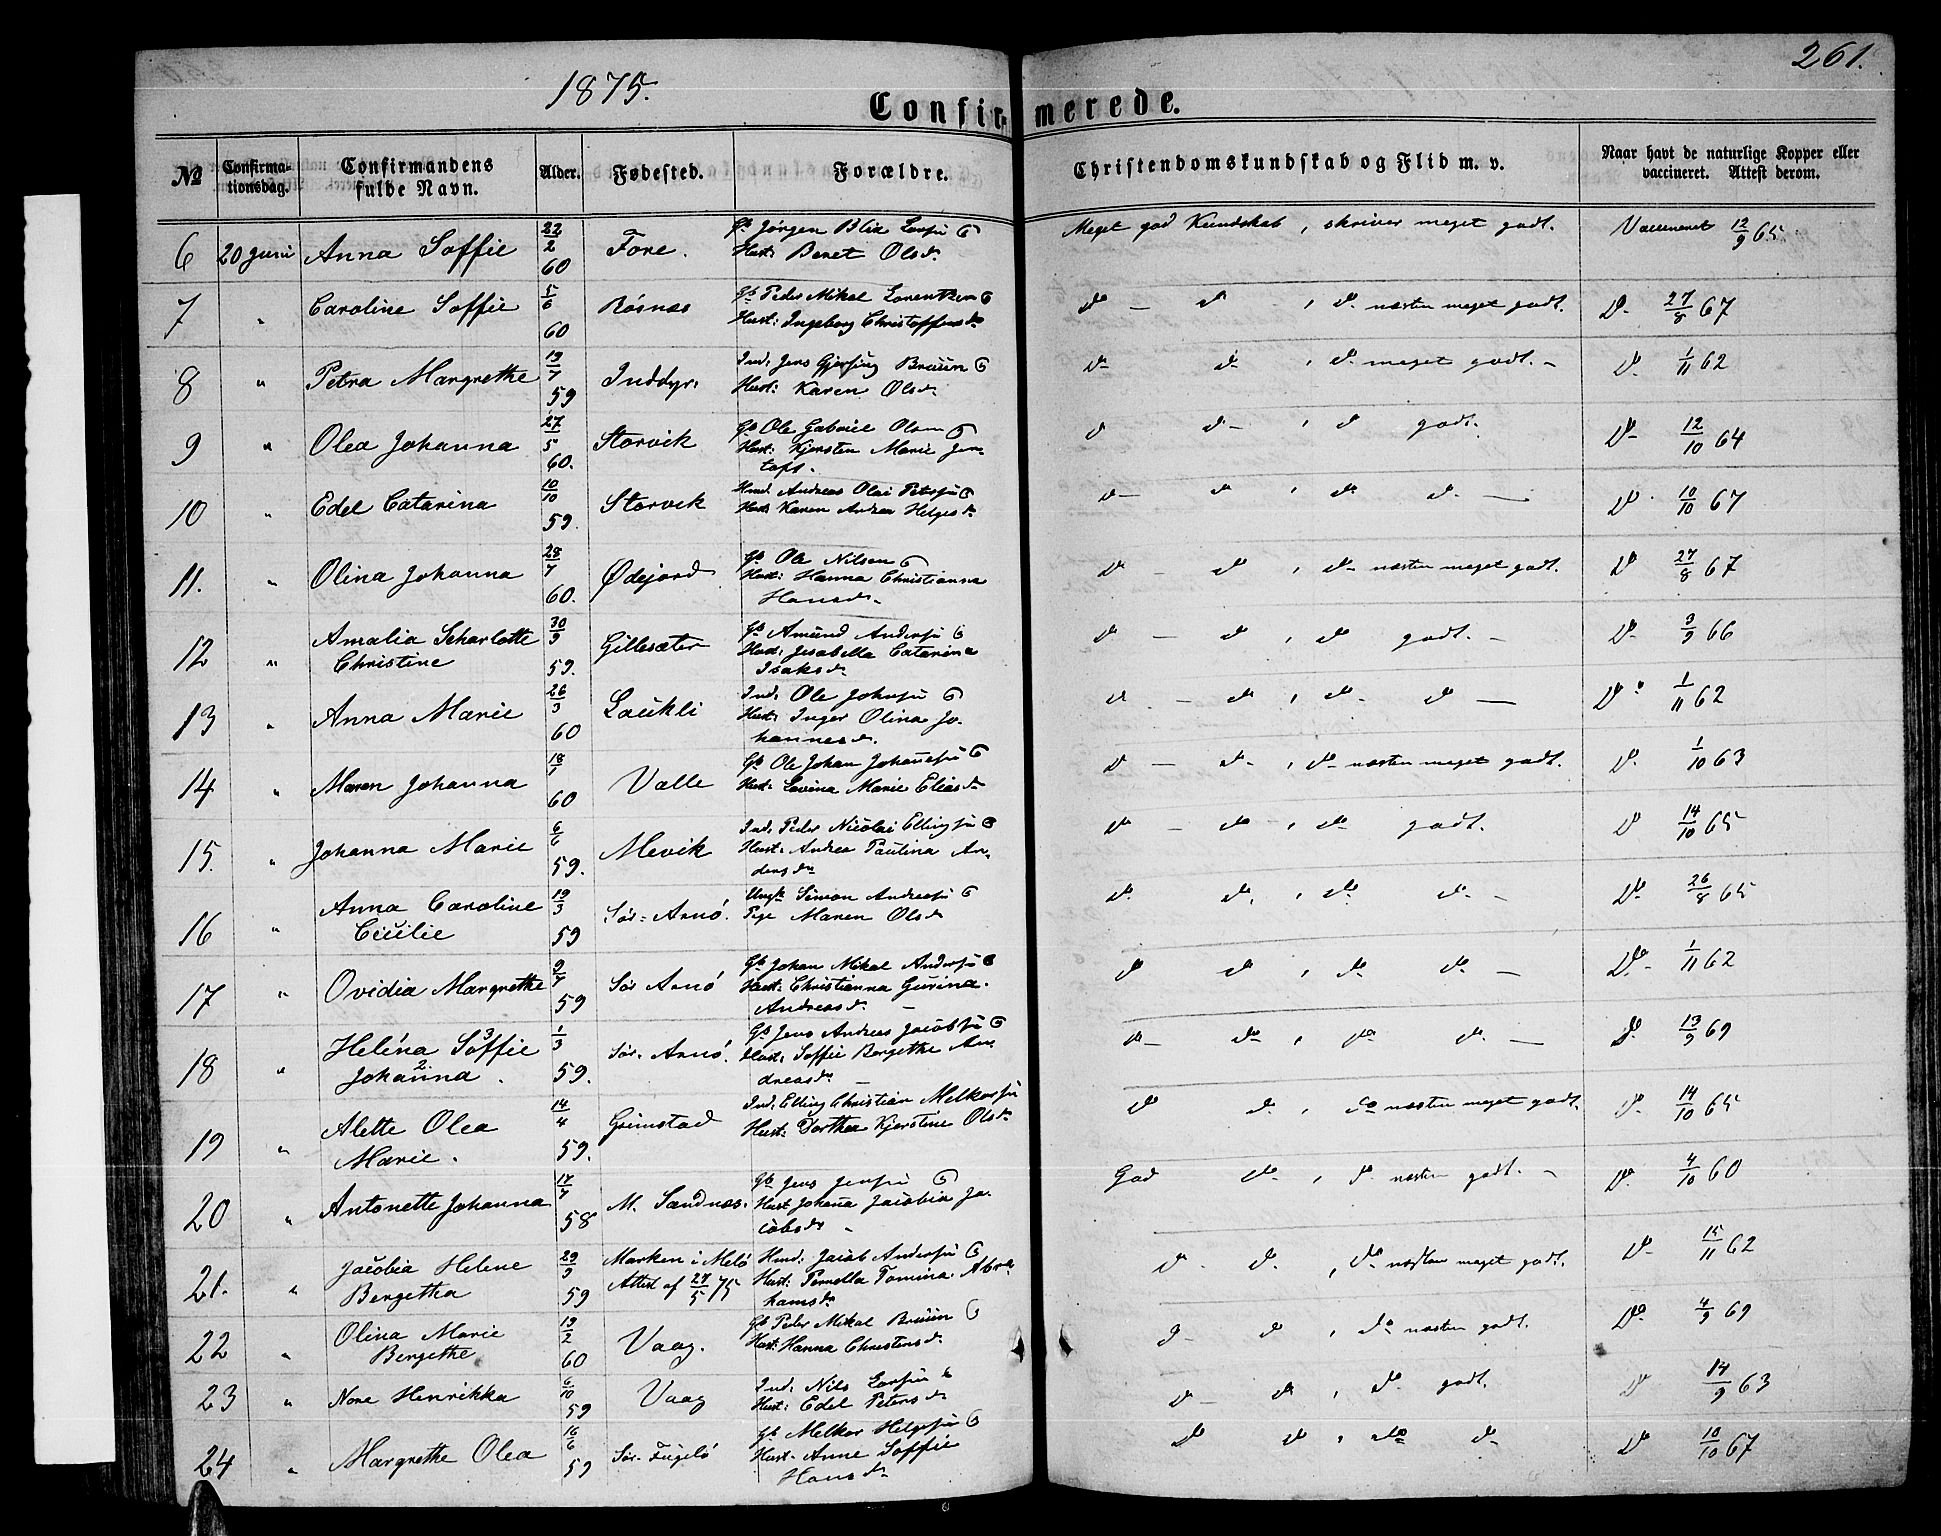 1875.
261.
Confirmerede.
№
Confirmationsdag.
Confirmandens fulde Navn.
Alder.
Fødested.
Forældre.
Christendomskundskab og Flid m. v.
Naar havt de naturlige Kopper eller vaccineret. Attest derom.
6 20 Juni Anna Soffie 22/2 60 Fore. Gb Jørgen Blix
Hust: Beret Olsdr Meget god Kundskab, skriver meget godt. Vaccineret 12/9 65.
7 " Caroline Soffie 5/6 60 Røsnes Gb Peder Mikal Lorentzen
Hust: Ingeborg Christoffersdr do — do, do næsten meget godt. Do 27/8 67
8 " Petra Margrethe 19/7 59 Inddyr. Ind. Jens Bruun
Hust: Karen Olsdr do do, do meget godt. - Do 1/11 62
9 " Olea Johanna 27/5 60. Storvik Gb Ole Gabriel Olsen
Hust: Kjersten Marie Jen-
tofs. do do, do godt. Do 12/10 64
10 " Edel Catarina 10/10 59. Storvik Hmd. Andreas Olai
Hust: Karen Andrea Helgesdr do do, do do — Do 10/10 67
11. " Olina Johanna 28/7 60. Ødejord Gb Ole Nilsen
Hust: Hanna Christianna
Hansdr. do — do, do næsten meget godt. Do 27/8 67
12 " Amalia Scharlotte
Christine 30/9 59. Gillesæter Gb Amund
Hust: Jesabella Catarina
Isaksdr do — do, do godt. - Do 3/9 66
13 " Anna Marie 26/3 60 Laukli Ind. Ole
Hust: Inger Olina Jo-
hannesdr. do — do, do do — Do 1/11 62
14 " Maren Johanna 18/1 60 Valle Gb Ole Johan
Hust: Lovina Marie Eliasdr do — do, do næsten meget godt. Do 1/10 63
15. " Johanna Marie 6/6 59. Mevik Ind. Peder Nicolai
Hust: Andrea Paulina An-
dersdr do — do, do godt. Do 14/10 65
16 " Anna Caroline
Cicilie 19/3 59 Sør-Arnø. Ungk. Simon
Pige Maren Olsdr do do, do do - Do 26/8 65
17 " Ovidia Margrethe 9/7 59 Sør Arnø Gb Johan Mikal
Hust: Christianna Gurina
Andreasdr. do do, do do — Do 1/11 62
18 " Helena Soffie 3
Johanna 2. 1/3 59. Sør-Arnø. Gb Jens Andreas
Hust: Soffie Bergethe An-
dreasdr do do, do do — Do 13/9 69
19 " Alette Olea
Marie. 14/4 59. Grimstad Ind. Elling Christian
Hust: Dorthea Kjerstine Olsdr do do, do næsten meget godt. Do 14/10 65
20 " Antonette Johanna 17/7 58 M. Sandnes. Gb Jens
Hust Johanna Jacobia Ja-
cobsdr God do, do næsten godt. - Do 4/10 60
21. " Jacobia Helene
Bergetha 29/9 59 Marken i Melø
Attest af 27/5 75 Hmd. Jacob
Hust: Pernella Tomina Abra-
hamsdr do do, do næsten meget godt. Do 15/11 62
22 " Olina Marie
Bergethe 19/2 60 Vaag. Gb Peder Mikal Bruun
Hust: Hanna Christensdr. do do, do næsten godt. Do 4/9 69
23 " Nora Henrikka 6/10 59 Vaag Ind. Nils
Hust: Edel Petersdr do do, do godt. Do 14/9 63
24 " Margrethe Olea 16/6 59 Sør-Fugelø Gb Melkor
Hust. Anne Soffie
Hansdr do do, do do Do 10/10 67